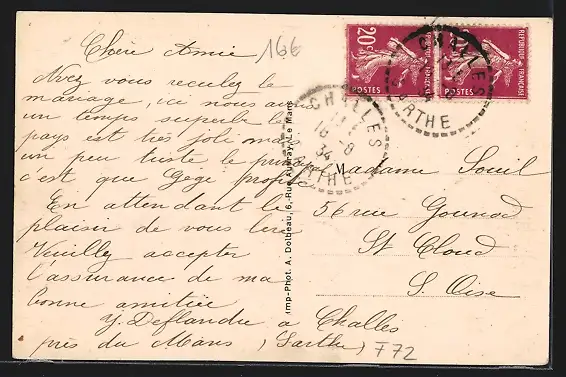 Chère Amie
166
Avez vous reculez le
mariage, ici nous avons
un temps superbe le
pays est très joli mais
un peu triste le principal
c'est que Gégé profite
En attendant le
plaisir de vous lire
Veuillez accepter
l'assurance de ma
bonne amitiée
Y. Deflandre a Challes
près du Mans (Sarthe)
F72
Imp-Phot. A. Dolbeau, 6, Rue Auvray, Le Mans
20c
REPUBLIQUE FRANÇAISE
POSTES
REPUBLIQUE FRANÇAISE
POSTES
CHALLES
16-8
34
SARTHE
CHALLES
SARTHE
Madame Souil
56 rue Gounod
St Cloud
S. Oise